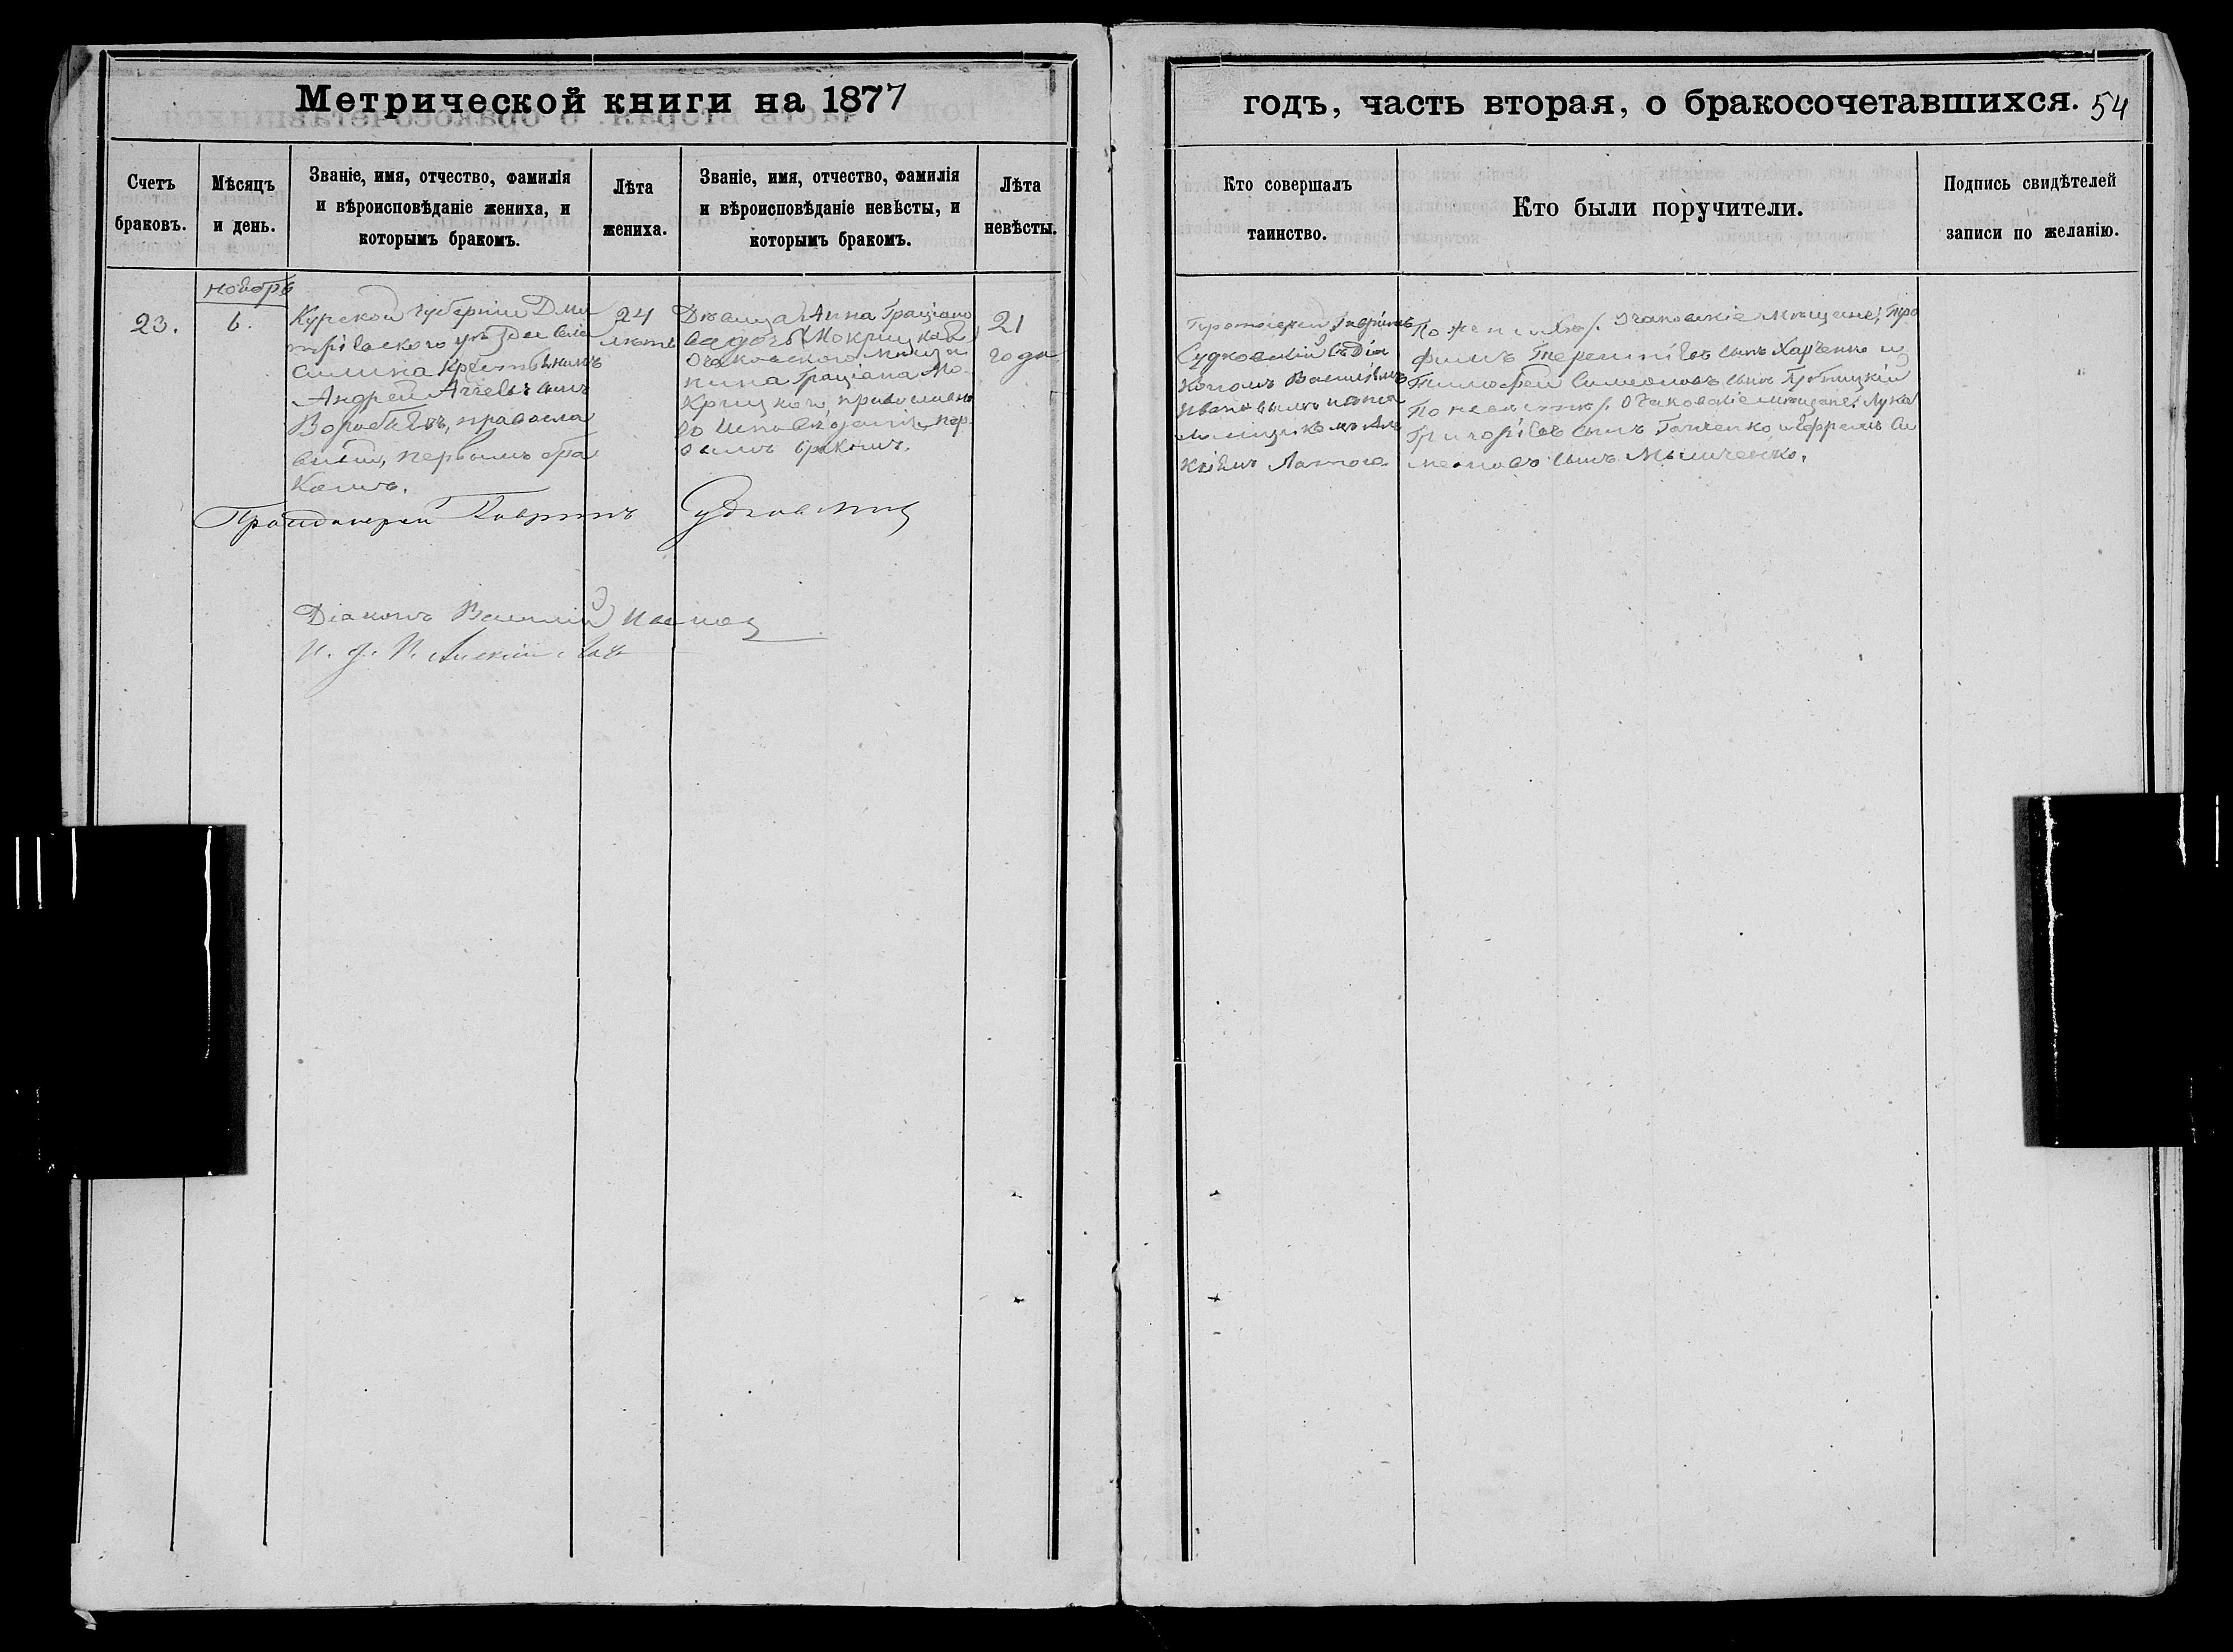 Метрической книги на 1877
годъ, часть вторая, о бракосочетавшихся. 54
Счетъ
браковъ.
Мѣсяцъ
и день.
Званіе, имя, отчество, фамилія
и вѣроисповѣданіе жениха, и
которымъ бракомъ.
Лѣта
жениха.
Званіе, имя, отчество, фамилія
и вѣроисповѣданіе невѣсты, и
которымъ бракомъ.
Лѣта
невѣсты.
Кто совершалъ
таинство.
Кто были поручители.
Подпись свидѣтелей
записи по желанію.
23.
Ноябрь
6.
Курской губерніи Дми
тріевского уѣзда села
крестьянинъ
Андрей сынъ
Воробьевъ, правосла
вный, первымъ бра
комъ.
24
лѣтъ
Дѣвица Анна Граціано
ва дочь Мокрицкая
Очаковского мѣща
нина Граціана Мо
крицкого, православно
го исповѣданія, пер
вымъ бракомъ.
21
года
Протоіерей Гавріилъ
Судковскій съ Діа
кономъ Василіемъ
Ивановымъ
Але
ксіемъ
По женихѣ: Очаковскіе мѣщане: Тро
фимъ Терентіевъ сынъ Харченко и
Тимофей Симеоновъ сынъ
По невѣстѣ: Очаковскіе мѣщане: Лука
Григоріевъ сынъ Ганченко, и Ефремъ Си
меоновъ сынъ
Протоіерей Гавріилъ Судковскій
Діаконъ Василій
И. д. П. Алексій